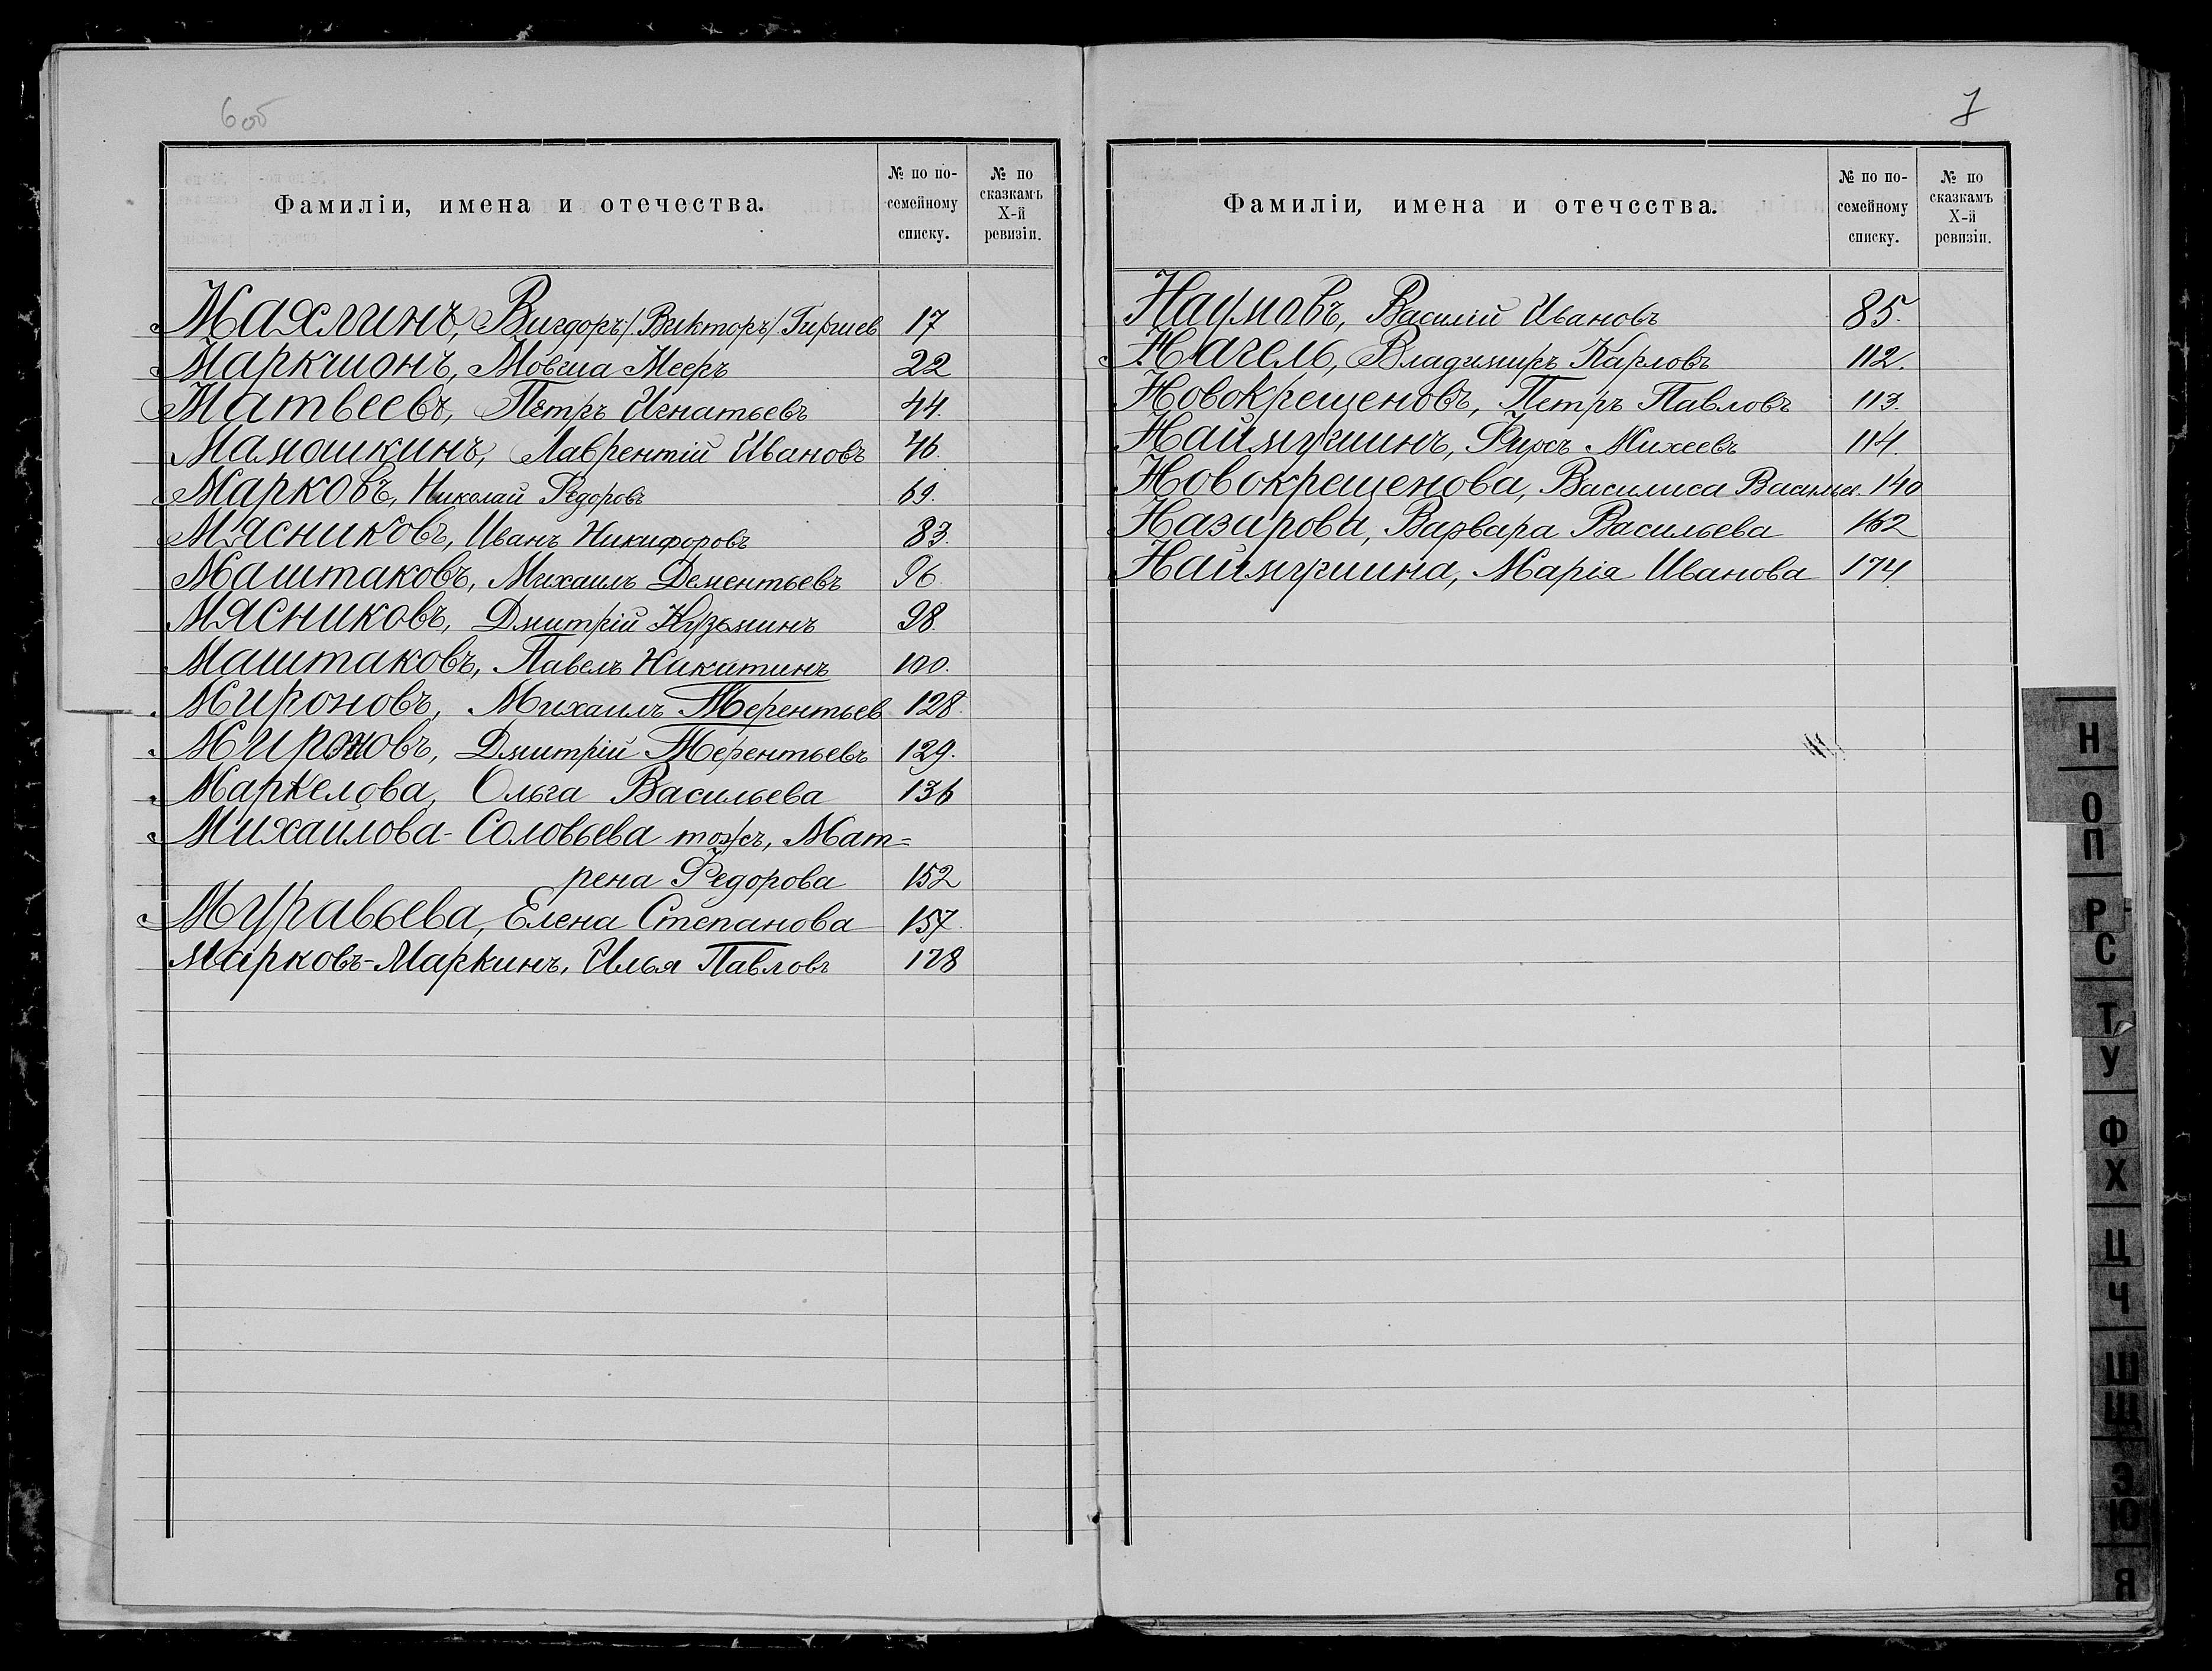 6 об
Фамиліи, имена и отечества.
№ по по-
семейному
списку.
№ по
сказкамъ
X-й
ревизіи.
Махлинъ, Вигдоръ /Викторъ/ Гиршев 17
Маркшонъ, Мовша Мееръ 22
Матвеевъ, Петръ Игнатьевъ 44.
Мамошкинъ, Лаврентій Ивановъ 46.
Марковъ, Николай Федоровъ 69.
Мясниковъ, Иванъ Никифоровъ 83.
Маштаковъ, Михаилъ Дементьевъ 96
Мясниковъ, Дмитрій Кузьминъ 98.
Маштаковъ, Павелъ Никитинъ 100.
Мироновъ, Михаилъ Терентьев 128.
Мироновъ, Дмитрій Терентьевъ 129.
Маркелова, Ольга Васильева 136
Михайлова-Соловьева тожъ, Мат=
рена Федорова 152
Муравьева, Елена Степанова 157.
Марковъ-Маркинъ, Илья Павловъ 178
7
Фамиліи, имена и отечества.
№ по по-
семейному
списку.
№ по
сказкамъ
X-й
ревизіи.
Наумовъ, Василій Ивановъ 85.
Нагель, Владимиръ Карловъ 112.
Новокрещеновъ, Петръ Павловъ 113.
Наймушинъ, Фирсъ Михеевъ 114.
Новокрещенова, Василиса Васильев. 140
Назарова, Варвара Васильева 162
Наймушина, Марія Иванова 174
Н
О
П
Р
С
Т
У
Ф
Х
Ц
Ч
Ш
Щ
Э
Ю
Я